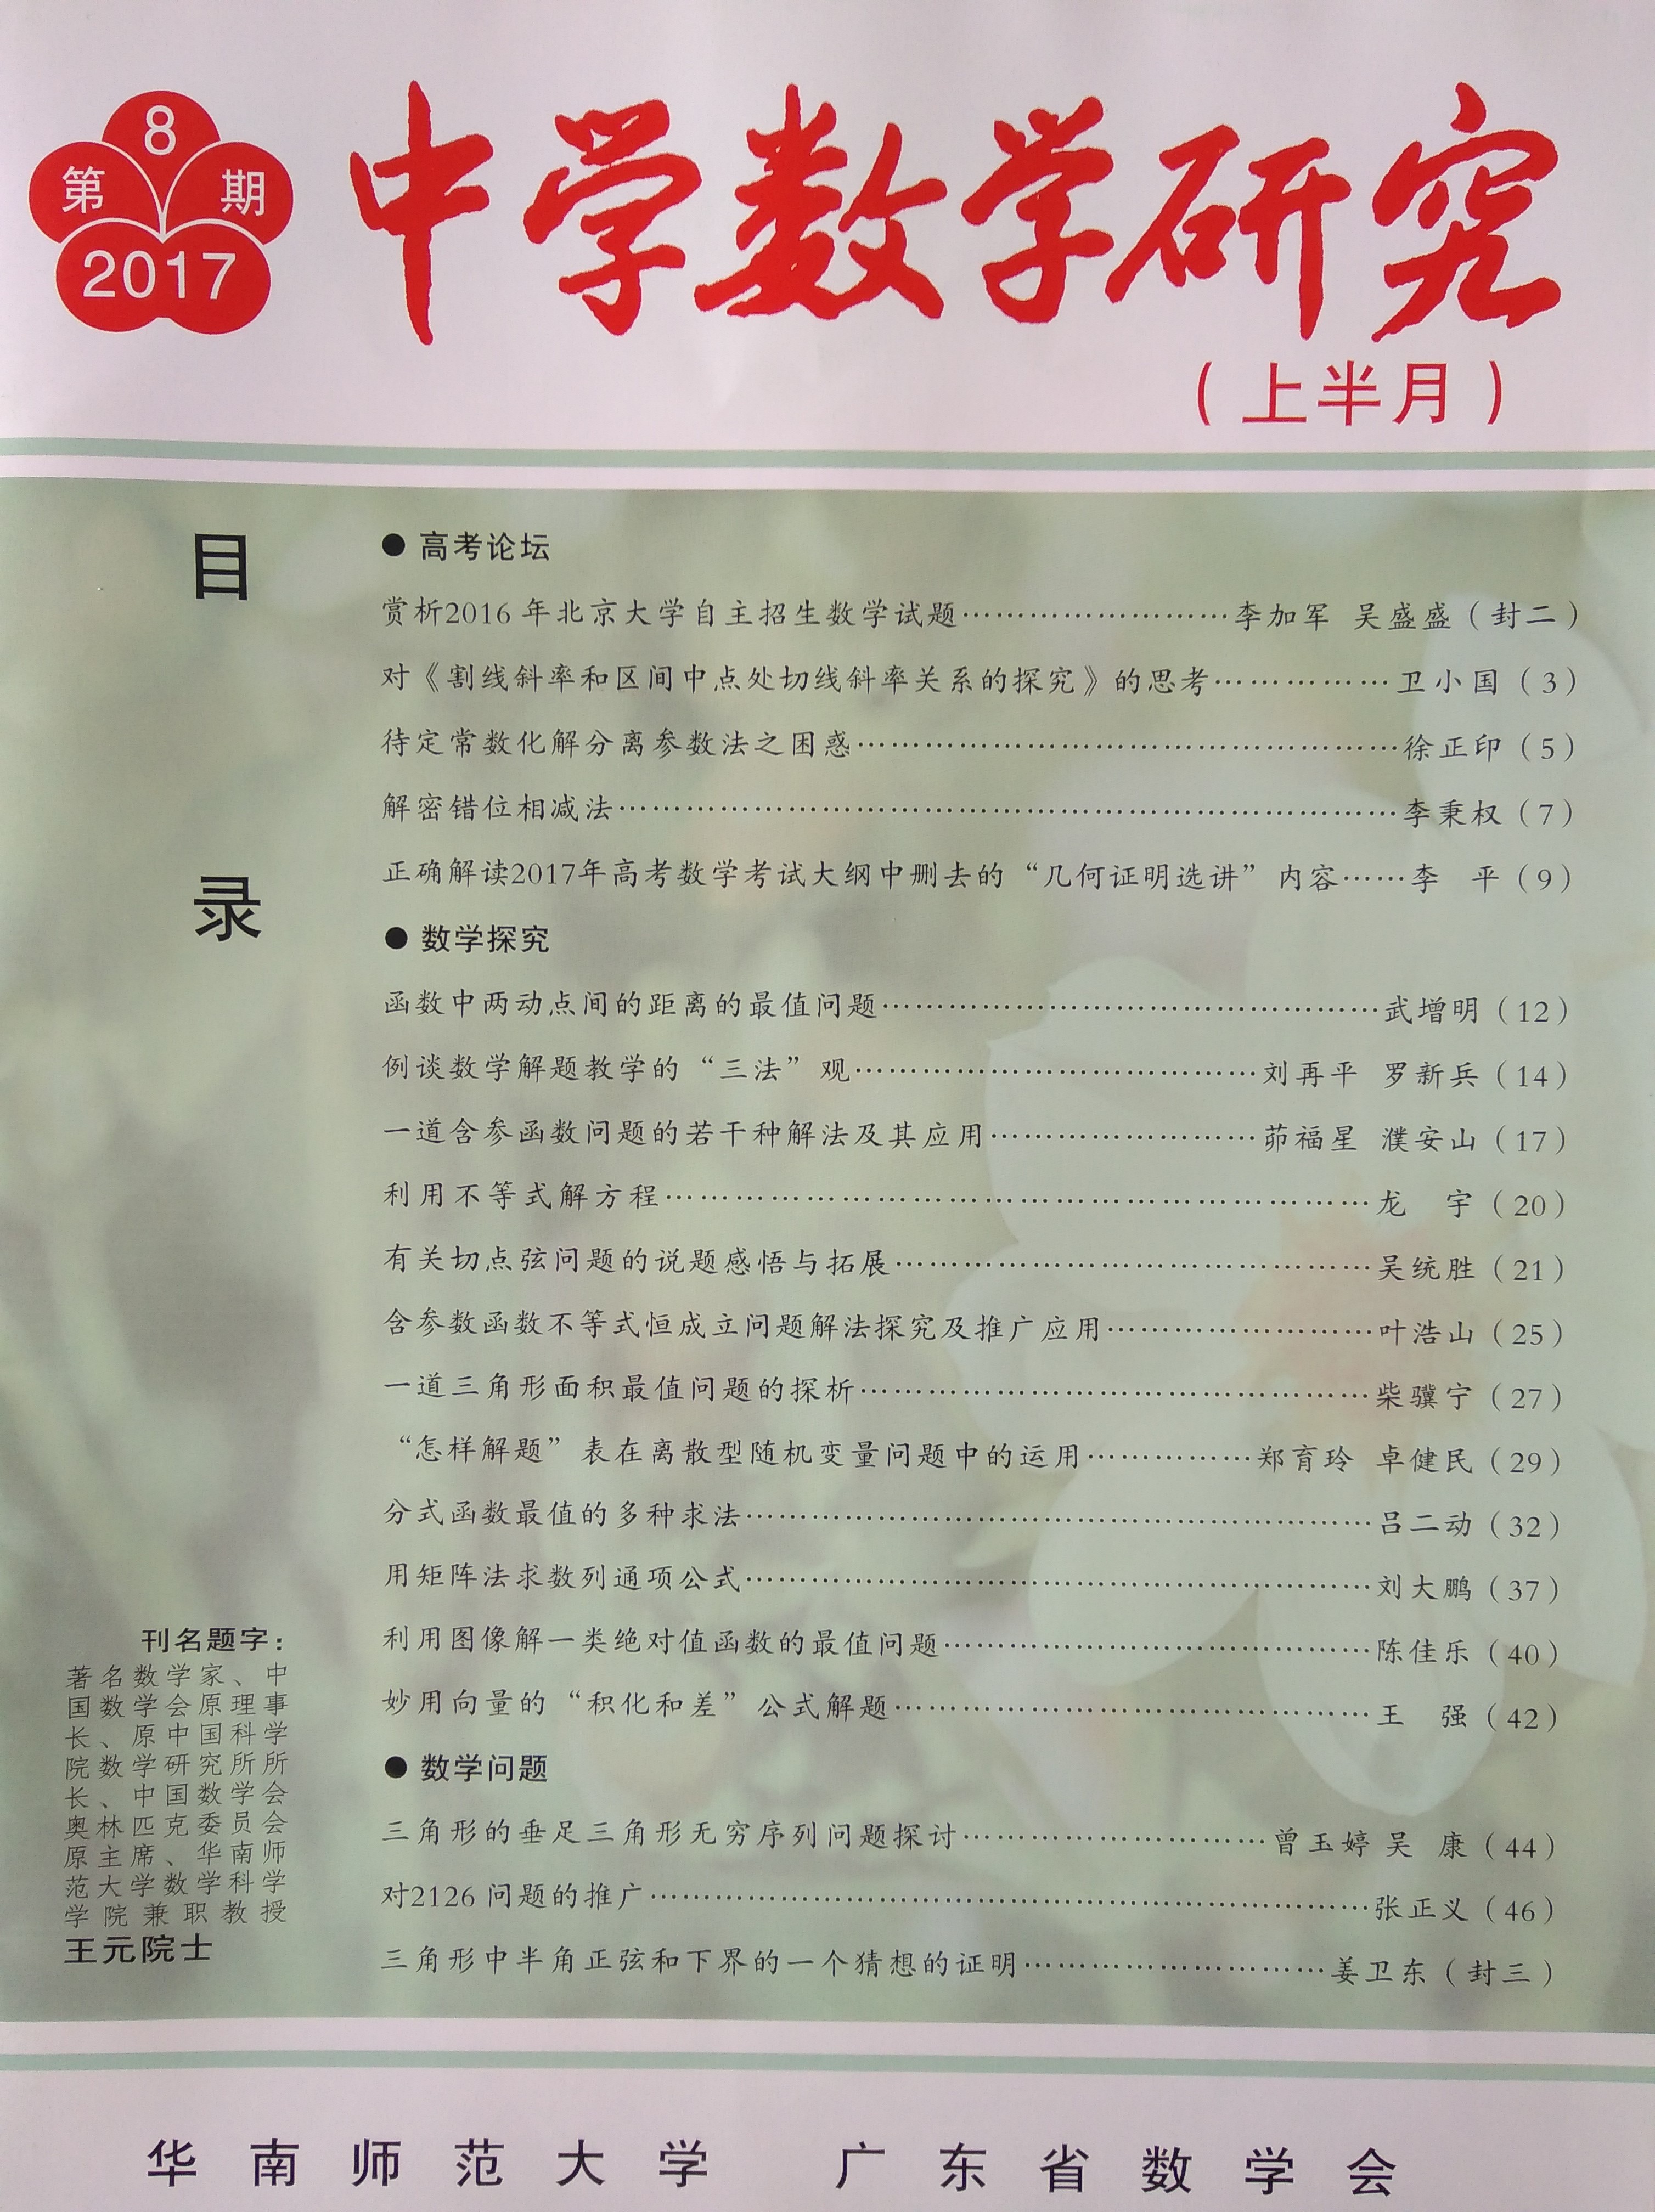 第8期
2017
中学数学研究
（上半月）
目录
● 高考论坛
赏析2016年北京大学自主招生数学试题……………………李加军 吴盛盛（封二）
对《割线斜率和区间中点处切线斜率关系的探究》的思考……………卫小国（3）
待定常数化解分离参数法之困惑………………………………………徐正印（5）
解密错位相减法…………………………………………………………李秉权（7）
正确解读2017年高考数学考试大纲中删去的“几何证明选讲”内容……李 平（9）
● 数学探究
函数中两动点间的距离的最值问题……………………………………武增明（12）
例谈数学解题教学的“三法”观………………………………刘再平 罗新兵（14）
一道含参函数问题的若干种解法及其应用……………………茆福星 濮安山（17）
利用不等式解方程………………………………………………………龙 宇（20）
有关切点弦问题的说题感悟与拓展……………………………………吴统胜（21）
含参数函数不等式恒成立问题解法探究及推广应用……………………叶浩山（25）
一道三角形面积最值问题的探析………………………………………柴骥宁（27）
“怎样解题”表在离散型随机变量问题中的运用……………郑育玲 卓健民（29）
分式函数最值的多种求法………………………………………………吕二动（32）
用矩阵法求数列通项公式………………………………………………刘大鹏（37）
利用图像解一类绝对值函数的最值问题………………………………陈佳乐（40）
妙用向量的“积化和差”公式解题……………………………………王 强（42）
● 数学问题
三角形的垂足三角形无穷序列问题探讨………………………曾玉婷 吴 康（44）
对2126问题的推广………………………………………………………张正义（46）
三角形中半角正弦和下界的一个猜想的证明………………………姜卫东（封三）
刊名题字：
著名数学家、中
国数学会原理事
长、原中国科学
院数学研究所所
长、中国数学会
奥林匹克委员会
原主席、华南师
范大学数学科学
学院兼职教授
王元院士
华南师范大学 广东省数学会